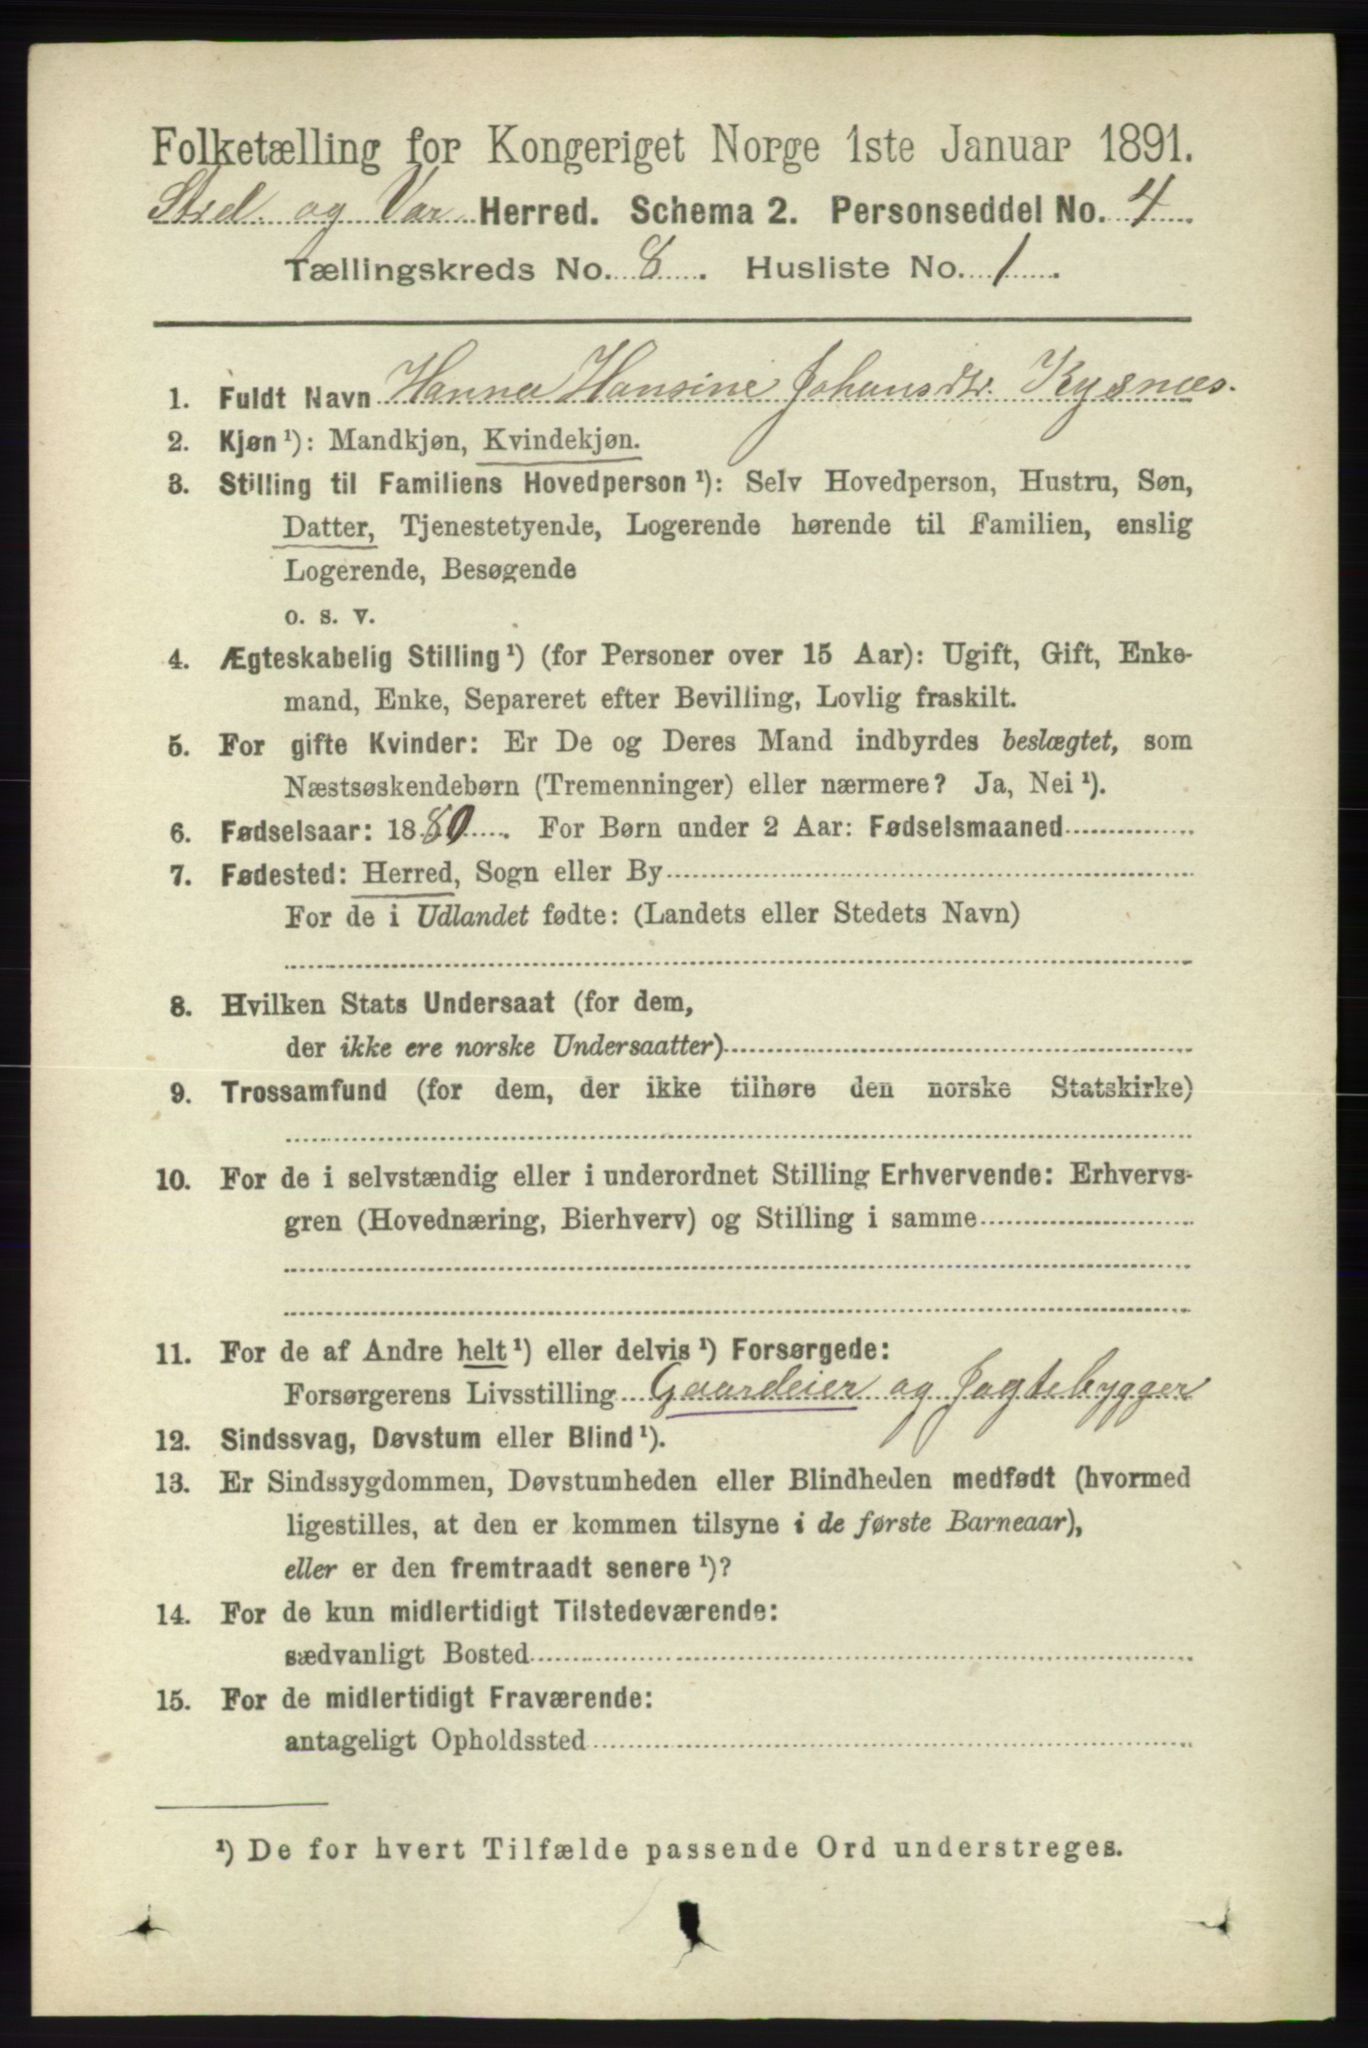 Folketælling for Kongeriget Norge 1ste Januar 1891.
Strd. og Var Herred. Schema 2. Personseddel No. 4
Tællingskreds No. 8. Husliste No. 1.
1. Fuldt Navn Hanna Hansine Johansdtr. Rysnæs.
2. Kjøn ¹): Mandkjøn, Kvindekjøn.
3. Stilling til Familiens Hovedperson ¹): Selv Hovedperson, Hustru, Søn,
Datter, Tjenestetyende, Logerende hørende til Familien, enslig
Logerende, Besøgende
o. s. v.
4. Ægteskabelig Stilling ¹) (for Personer over 15 Aar): Ugift, Gift, Enke-
mand, Enke, Separeret efter Bevilling, Lovlig fraskilt.
5. For gifte Kvinder: Er De og Deres Mand indbyrdes beslægtet, som
Næstsøskendebørn (Tremenninger) eller nærmere? Ja, Nei ¹).
6. Fødselsaar: 1880. For Børn under 2 Aar: Fødselsmaaned
7. Fødested: Herred, Sogn eller By
For de i Udlandet fødte: (Landets eller Stedets Navn)
8. Hvilken Stats Undersaat (for dem,
der ikke ere norske Undersaatter)
9. Trossamfund (for dem, der ikke tilhøre den norske Statskirke)
10. For de i selvstændig eller i underordnet Stilling Erhvervende: Erhvervs-
gren (Hovednæring, Bierhverv) og Stilling i samme
11. For de af Andre helt ¹) eller delvis ¹) Forsørgede:
Forsørgerens Livsstilling Gaardeier og Jagtebygger
12. Sindssvag, Døvstum eller Blind ¹).
13. Er Sindssygdommen, Døvstumheden eller Blindheden medfødt (hvormed
ligestilles, at den er kommen tilsyne i de første Barneaar),
eller er den fremtraadt senere ¹)?
14. For de kun midlertidigt Tilstedeværende:
sædvanligt Bosted
15. For de midlertidigt Fraværende:
antageligt Opholdssted
¹) De for hvert Tilfælde passende Ord understreges.